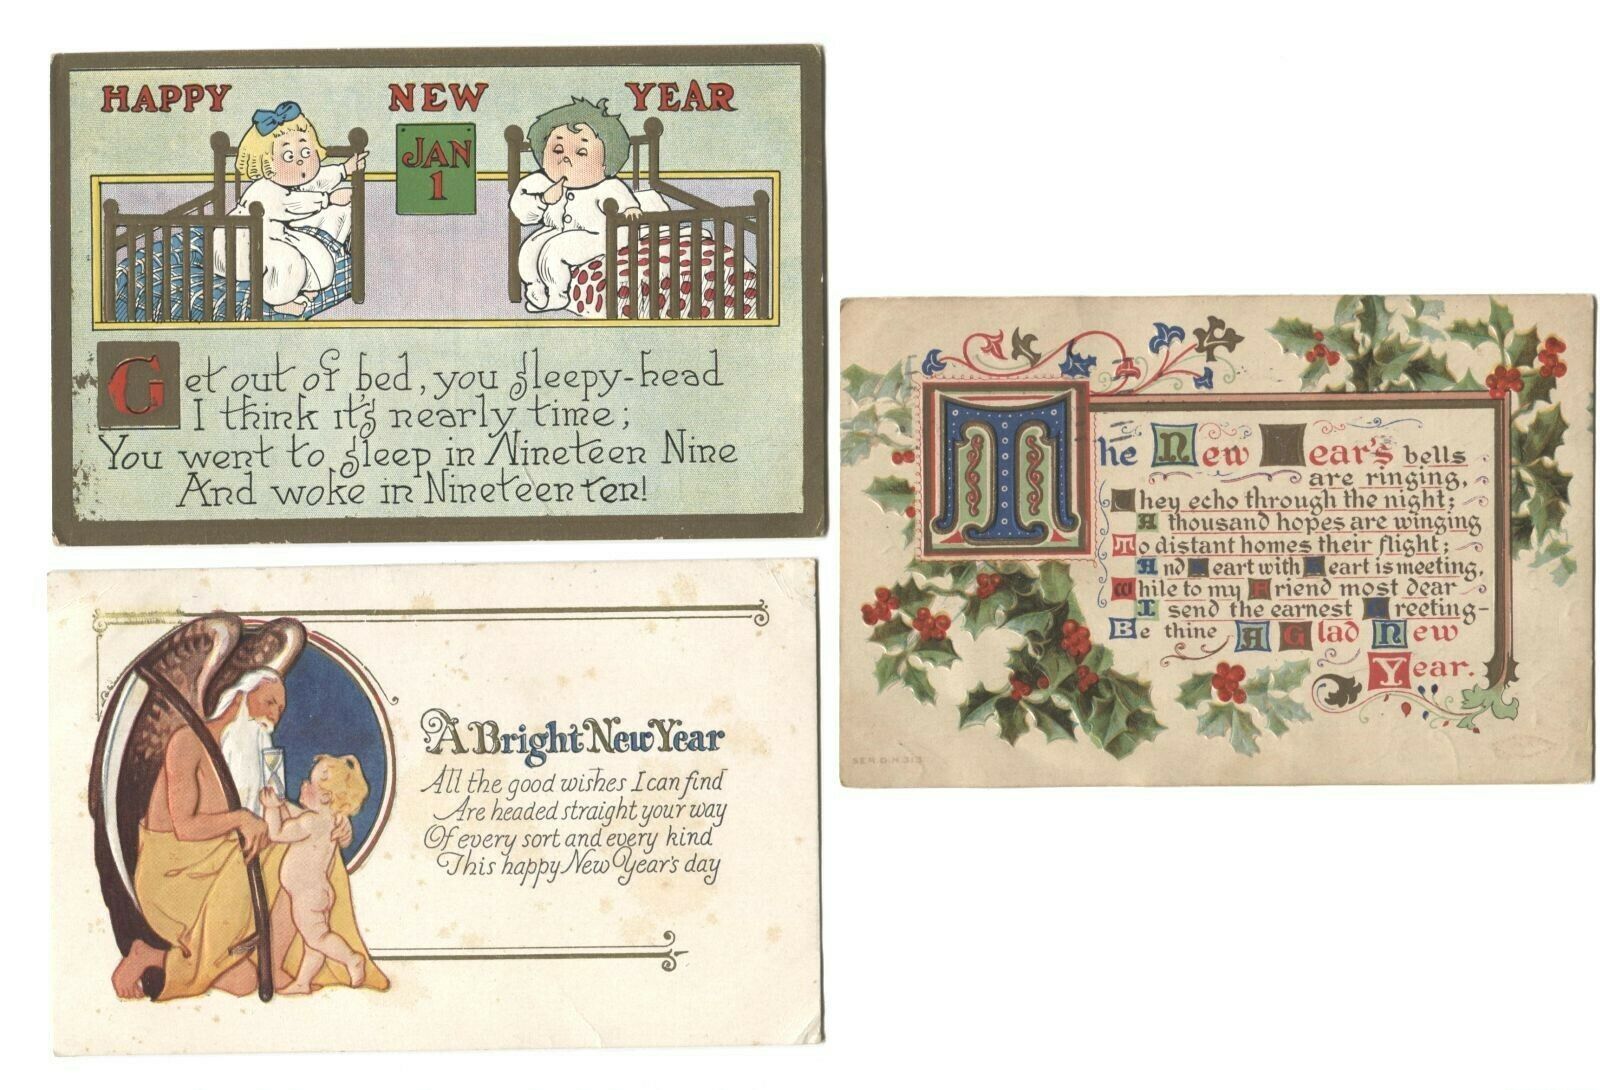 HAPPY NEW YEAR
JAN
1
Get out of bed, you sleepy-head
I think it's nearly time;
You went to sleep in Nineteen Nine
And woke in Nineteen ten!
A Bright New Year
All the good wishes I can find
Are headed straight your way
Of every sort and every kind
This happy New Year's day
The New Year's bells
are ringing,
They echo through the night;
A thousand hopes are winging
To distant homes their flight;
And Heart with Heart is meeting,
While to my Friend most dear
I send the earnest Greeting-
Be thine A Glad New
Year.
SER.D.N.313